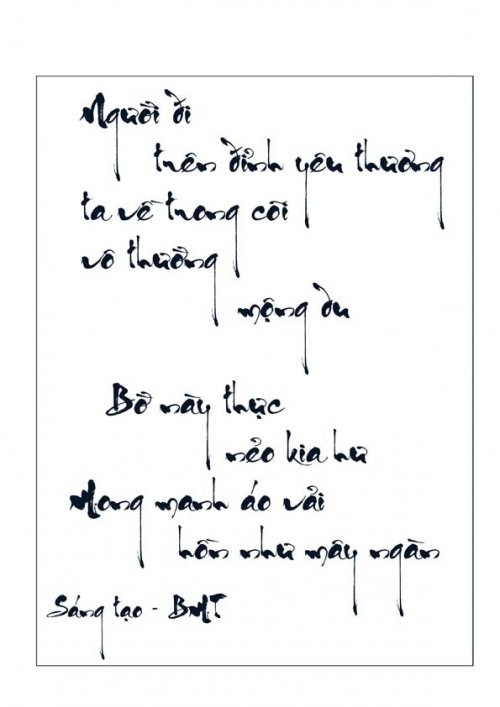 Người đi
trên đỉnh yêu thương
ta về trong cõi
vô thường
mộng du
Bờ này thực
nẻo kia hư
Mong manh áo vải
hồn như mây ngàn
Sáng tạo - BMT